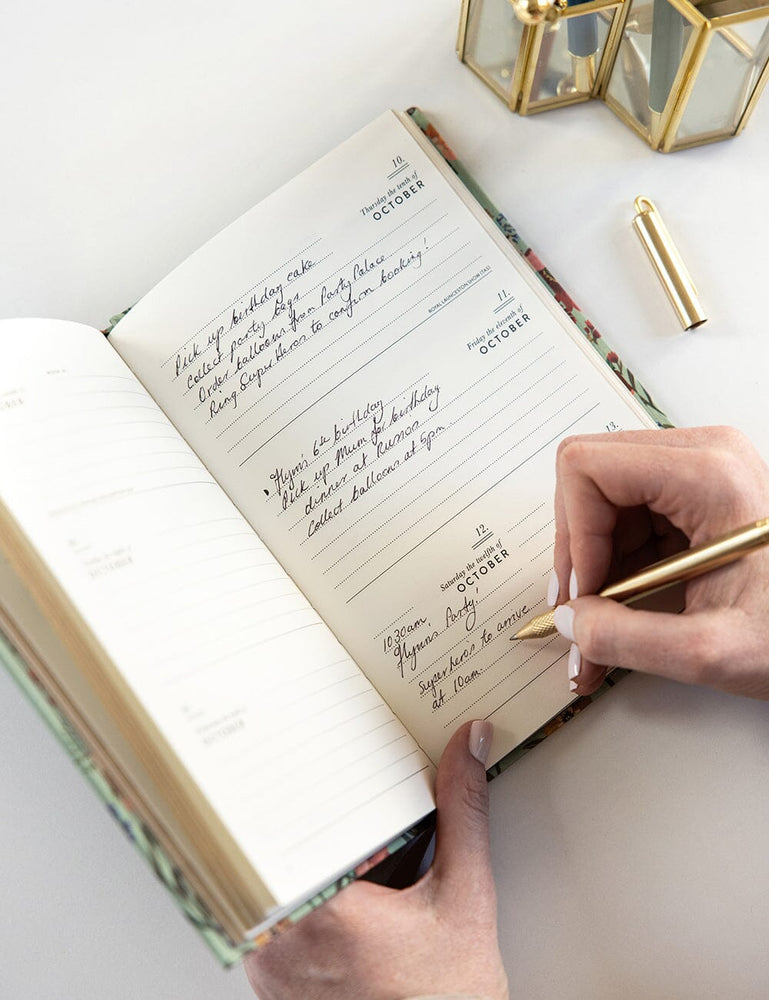 10.
Thursday the tenth of
OCTOBER
Pick up birthday cake
Collect party bags
Order balloons from Party Palace
Ring SuperHeros to confirm booking!
ROYAL LAUNCESTON SHOW (TAS)
11.
Friday the eleventh of
OCTOBER
Flynn's 6th birthday
Pick up Mum for birthday
dinner at Russos
Collect balloons at 5pm.
12.
Saturday the twelfth of
OCTOBER
10:30am
Flynn's Party!
Superhero's to arrive
at 10am.
13.
OCTOBER
OCTOBER